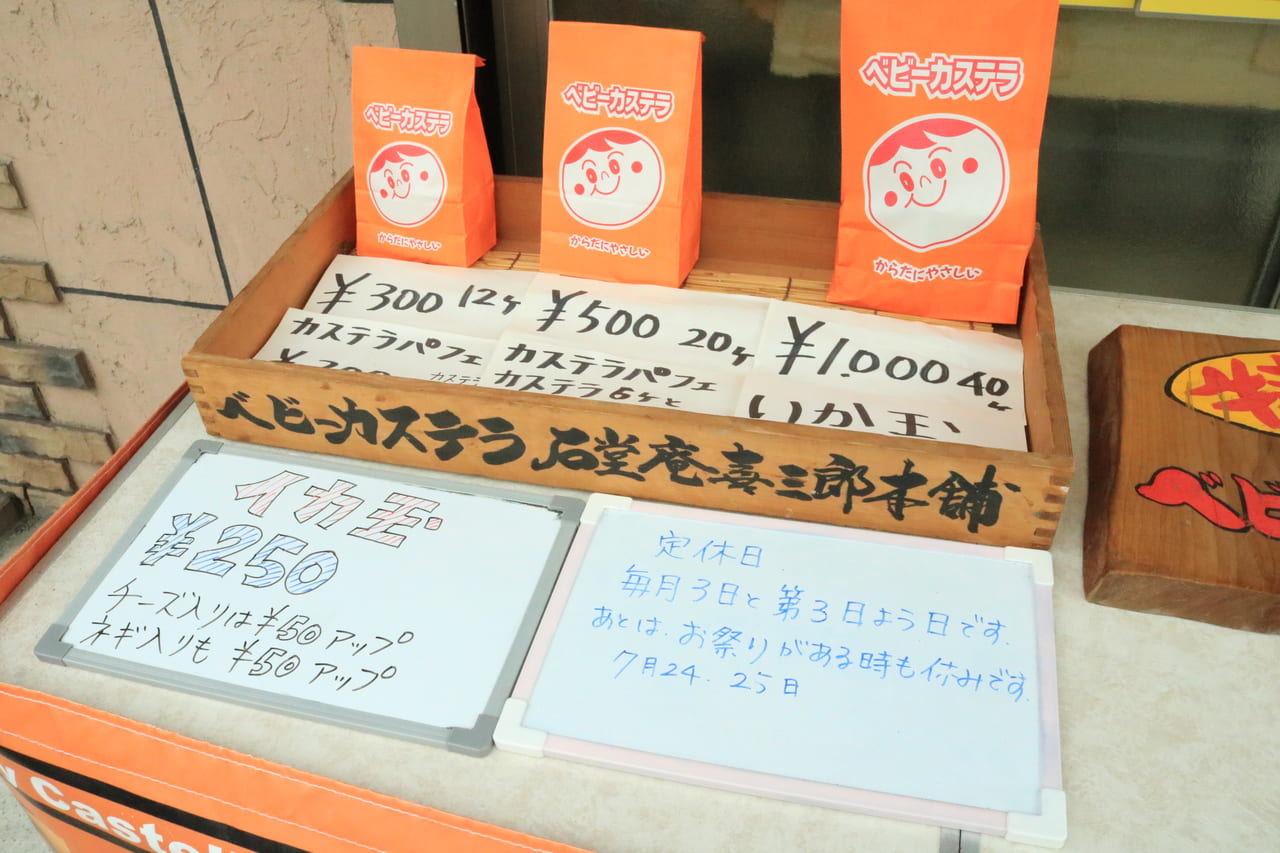 ベビーカステラ
からだにやさしい
ベビーカステラ
からだにやさしい
ベビーカステラ
からだにやさしい
¥300 12ヶ
¥500 20ヶ
¥1.000 40ヶ
カステラパフェ
¥300 カステラ
カステラパフェ
カステラ6ヶと
いか玉
ベビーカステラ 石堂庵喜三郎本舗
イカ玉
¥250
チーズ入りは¥50アップ
ネギ入りも ¥50アップ
定休日
毎月3日と第3日よう日です.
あとは.お祭りがある時も休みです.
7月24.25日
ベビ